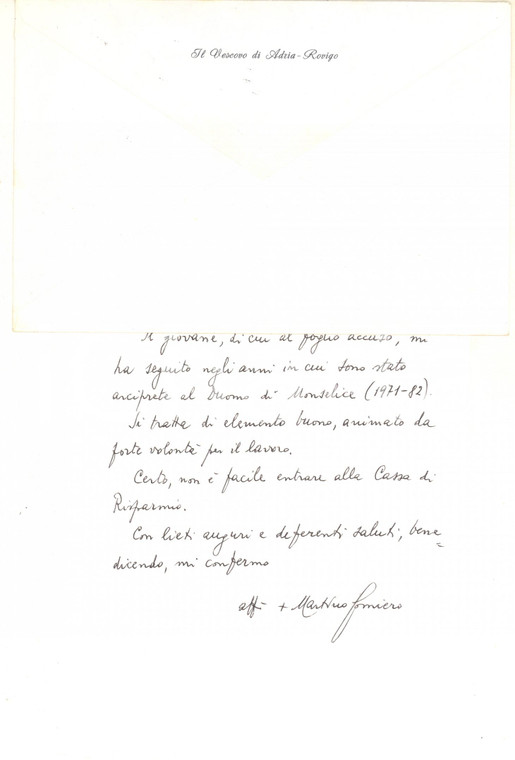 Il Vescovo di Adria-Rovigo
Il giovane, di cui al foglio accluso, mi
ha seguito negli anni in cui sono stato
arciprete al Duomo di Monselice (1971-82).
Si tratta di elemento buono, animato da
forte volontà per il lavoro.
Certo, non è facile entrare alla Cassa di
Risparmio.
Con lieti auguri e deferenti saluti, bene=
dicendo, mi confermo
aff. + Martino Gomiero